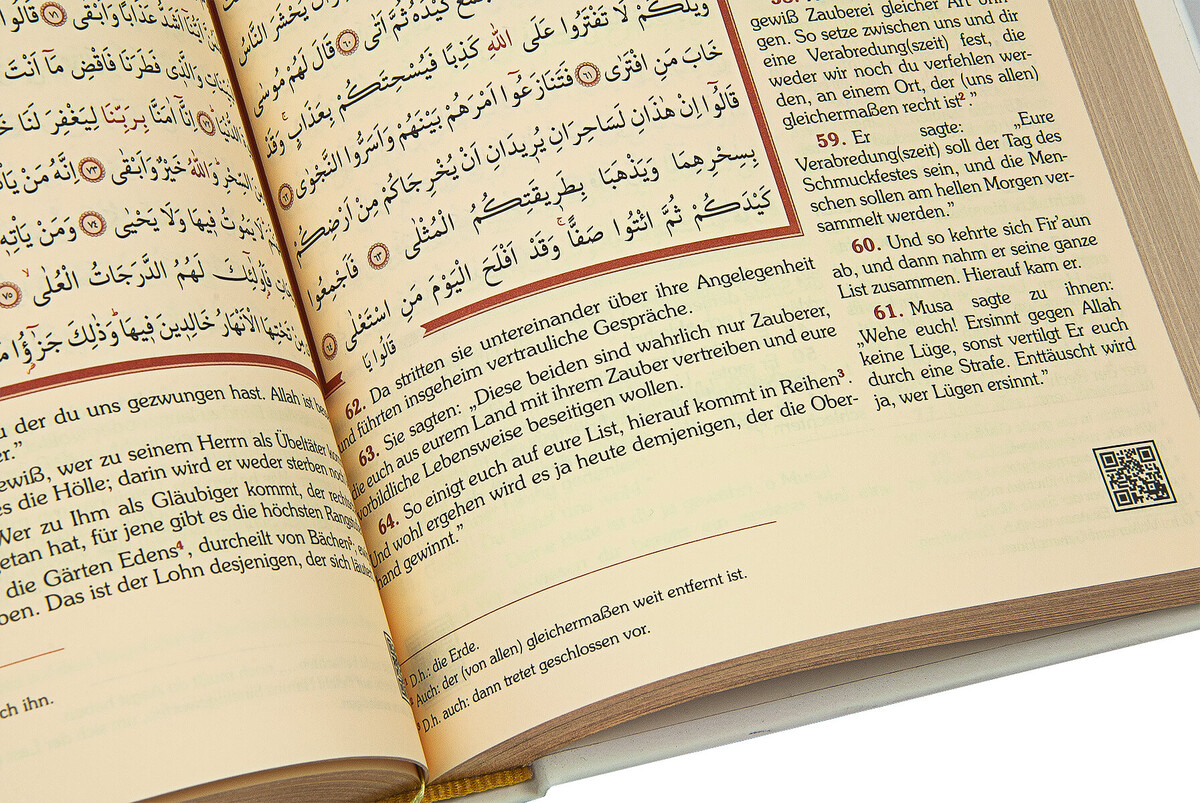 قَالُوا
اَشَدُّ عَذَابًا وَاَبْقٰى ﴿٧١﴾ قَالُوا
وَالَّذٖى فَطَرَنَا فَاقْضِ مَآ اَنْتَ
اِنَّآ اٰمَنَّا بِرَبِّنَا لِيَغْفِرَ لَنَا
السِّحْرِ وَاللّٰهُ خَيْرٌ وَاَبْقٰى ﴿٧٣﴾ اِنَّهُ مَنْ يَاْتِ
لَا يَمُوتُ فٖيهَا وَلَا يَحْيٰى ﴿٧٤﴾ وَمَنْ يَاْتِهٖ
فَاُولٰٓئِكَ لَهُمُ الدَّرَجَاتُ الْعُلٰى ﴿٧٥﴾
تَحْتِهَا الْاَنْهَارُ خَالِدٖينَ فٖيهَا وَذٰلِكَ جَزٰٓؤُا
der du uns gezwungen hast. Allah ist
er.”
ewiß, wer zu seinem Herrn als Übeltäter
es die Hölle; darin wird er weder sterben
Wer zu Ihm als Gläubiger kommt, der
getan hat, für jene gibt es die höchsten
die Gärten Edens⁴, durcheilt von Bächen⁵;
ben. Das ist der Lohn desjenigen, der sich
ch ihn.
يُحْشَرَ النَّاسُ
كَيْدَهُ ثُمَّ اَتٰى ﴿٦٠﴾ قَالَ لَهُمْ مُوسٰى
وَيْلَكُمْ لَا تَفْتَرُوا عَلَى اللّٰهِ كَذِبًا فَيُسْحِتَكُمْ بِعَذَابٍ وَقَدْ
خَابَ مَنِ افْتَرٰى ﴿٦١﴾ فَتَنَازَعُٓوا اَمْرَهُمْ بَيْنَهُمْ وَاَسَرُّوا النَّجْوٰى ﴿٦٢﴾
قَالُٓوا اِنْ هٰذَانِ لَسَاحِرَانِ يُرٖيدَانِ اَنْ يُخْرِجَاكُمْ مِنْ اَرْضِكُمْ
بِسِحْرِهِمَا وَيَذْهَبَا بِطَرٖيقَتِكُمُ الْمُثْلٰى ﴿٦٣﴾ فَاَجْمِعُوا
كَيْدَكُمْ ثُمَّ ائْتُوا صَفًّا وَقَدْ اَفْلَحَ الْيَوْمَ مَنِ اسْتَعْلٰى ﴿٦٤﴾
قَالُوا يَا
gewiß Zauberei gleicher Art
gen. So setze zwischen uns und dir
eine Verabredung(szeit) fest, die
weder wir noch du verfehlen wer-
den, an einem Ort, der (uns allen)
gleichermaßen recht ist².”
59. Er sagte: „Eure
Verabredung(szeit) soll der Tag des
Schmuckfestes sein, und die Men-
schen sollen am hellen Morgen ver-
sammelt werden.”
60. Und so kehrte sich Fir’aun
ab, und dann nahm er seine ganze
List zusammen. Hierauf kam er.
61. Musa sagte zu ihnen:
„Wehe euch! Ersinnt gegen Allah
keine Lüge, sonst vertilgt Er euch
durch eine Strafe. Enttäuscht wird
ja, wer Lügen ersinnt.”
62. Da stritten sie untereinander über ihre Angelegenheit
und führten insgeheim vertrauliche Gespräche.
63. Sie sagten: „Diese beiden sind wahrlich nur Zauberer,
die euch aus eurem Land mit ihrem Zauber vertreiben und eure
vorbildliche Lebensweise beseitigen wollen.
64. So einigt euch auf eure List, hierauf kommt in Reihen³.
Und wohl ergehen wird es ja heute demjenigen, der die Ober-
hand gewinnt.”
¹ D.h.: die Erde.
² Auch: der (von allen) gleichermaßen weit entfernt ist.
³ D.h. auch: dann tretet geschlossen vor.